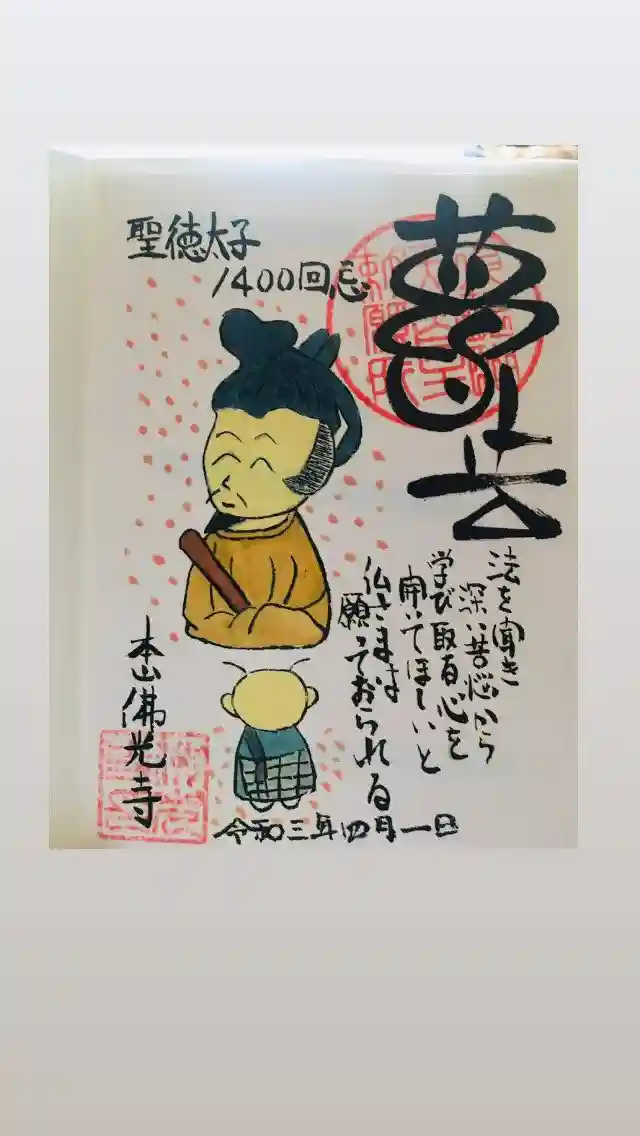 聖徳太子
1400回忌
法を聞き
深い苦悩から
学び取る心を
開いてほしいと
仏さまは
願っておられる
本山佛光寺
令和三年四月一日